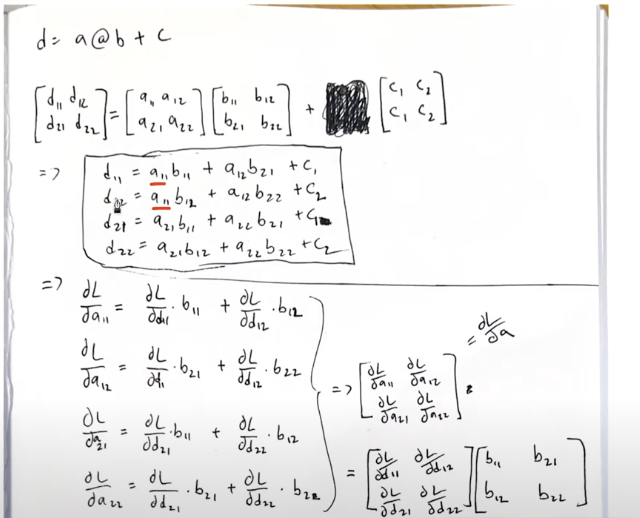 d = a@b + c
[d₁₁ d₁₂; d₂₁ d₂₂] = [a₁₁ a₁₂; a₂₁ a₂₂] [b₁₁ b₁₂; b₂₁ b₂₂] + [c₁ c₂; c₁ c₂]
=> d₁₁ = a₁₁b₁₁ + a₁₂b₂₁ + c₁
d₁₂ = a₁₁b₁₂ + a₁₂b₂₂ + c₂
d₂₁ = a₂₁b₁₁ + a₂₂b₂₁ + c₁
d₂₂ = a₂₁b₁₂ + a₂₂b₂₂ + c₂
=> ∂L/∂a₁₁ = ∂L/∂d₁₁ · b₁₁ + ∂L/∂d₁₂ · b₁₂
∂L/∂a₁₂ = ∂L/∂d₁ · b₂₁ + ∂L/∂d₁₂ · b₂₂
∂L/∂a₂₁ = ∂L/∂d₂₁ · b₁₁ + ∂L/∂d₂₂ · b₁₂
∂L/∂a₂₂ = ∂L/∂d₂₁ · b₂₁ + ∂L/∂d₂₂ · b₂₂
=> [∂L/∂a₁₁ ∂L/∂a₁₂; ∂L/∂a₂₁ ∂L/∂a₂₂] = ∂L/∂a
= [∂L/∂d₁₁ ∂L/∂d₁₂; ∂L/∂d₂₁ ∂L/∂d₂₂] [b₁₁ b₂₁; b₁₂ b₂₂]